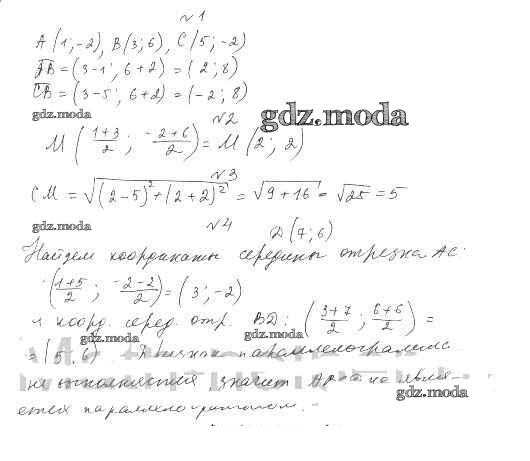 №1
A(1;-2), B(3;6), C(5;-2)
AB = (3-1; 6+2) = (2; 8)
CB = (3-5; 6+2) = (-2; 8)
gdz.moda
№2
gdz.moda
M (1+3/2; -2+6/2) = M (2; 2)
№3
CM = √(2-5)²+(2+2)² = √9+16 = √25 = 5
gdz.moda
№4
D(7; 6)
Найдем координаты середины отрезка AC:
(1+5/2; -2-2/2) = (3; -2)
и коорд. серед. отр. BD: (3+7/2; 6+6/2) =
gdz.moda
= (5; 6) признак параллелограмма
не выполняется, значит не явля-
gdz.moda
ется параллелограммом.